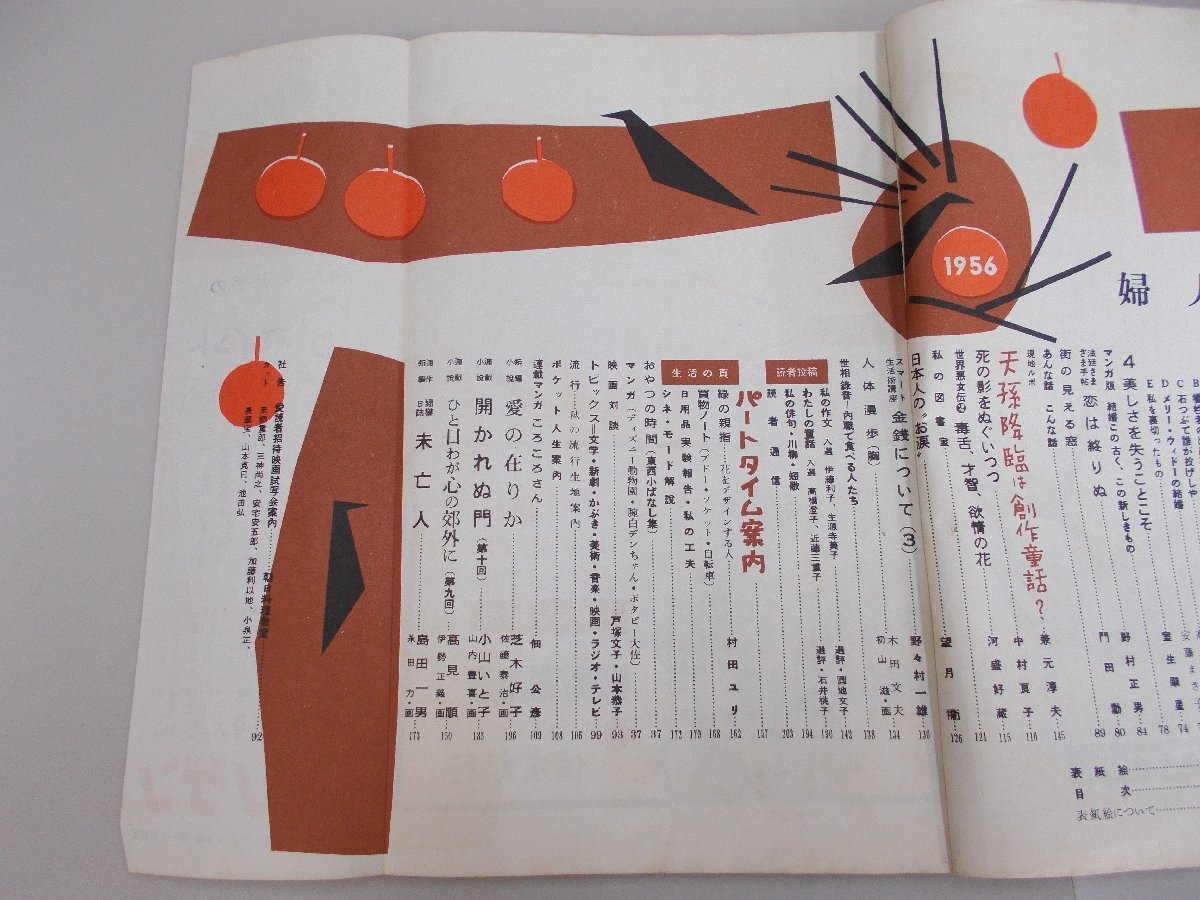 1956
婦
4 美しさを失うことこそ
C 石つぶて誰が投げしや 74
D メリー・ウィドーの結婚 室生犀星 78
E 私を裏切ったもの 野村正男 84
マンガ版 結婚この古く、この新しきもの 80
法廷さまざま手帖 恋は終りぬ 門田勲 89
街の見える窓
あんな話 こんな話
現地ルポ 天孫降臨は創作童話? 兼元淳夫 145
死の影をぬぐいつつ 中村貢子 110
世界悪女伝② 毒舌、才智、欲情の花 河盛好蔵 121
私の図書室 望月衛 126
日本人の“お涙” 野々村一雄 130
スマート生活術講座 金銭について(3) 木田文夫 134
人体漫歩(胸) 初山滋・画 138
世相録音―内職で食べる人たち 142
読者投稿
私の作文 入選 伊藤利子、生源寺美子 選評・圓地文子 120
わたしの童話 入選 高橋澄子、近藤三重子 選評・石井桃子 194
私の俳句・川柳・短歌 203
読者通信 157
パートタイム案内
生活の頁
緑の親指―花をデザインする人 村田ユリ 162
買物ノート(ブドー・ソケット・自転車) 168
日用品実験報告・私の工夫 170
シネ・モード解説 172
おやつの時間(東西小ばなし集) 37
マンガ(ディズニー動物園・腕白デンちゃん・ポタピー大佐) 37
映画対談 戸塚文子・山本恭子 93
トピックス―文学・新劇・かぶき・美術・音楽・映画・ラジオ・テレビ 99
流行―秋の流行生地案内 106
ポケット人生案内 108
連載マンガ ころころさん 佃公彦 109
短編小説 愛の在りか 芝木好子 佐藤泰治・画 196
連載小説 開かれぬ門(第十回) 小山いと子 山内豊喜・画 185
連載小説 ひと日わが心の郊外に(第九回) 高見順 伊勢正義・画 150
連作短編 婦警日誌 未亡人 島田一男 永田力・画 173
社告 愛読者招待映画試写会案内 朝日料理教室 92
カット 三神尚之、安宅安五郎、加藤利以地、小泉正、長瀬宝、山本克巳、池田弘
表紙絵
目次
表紙絵について